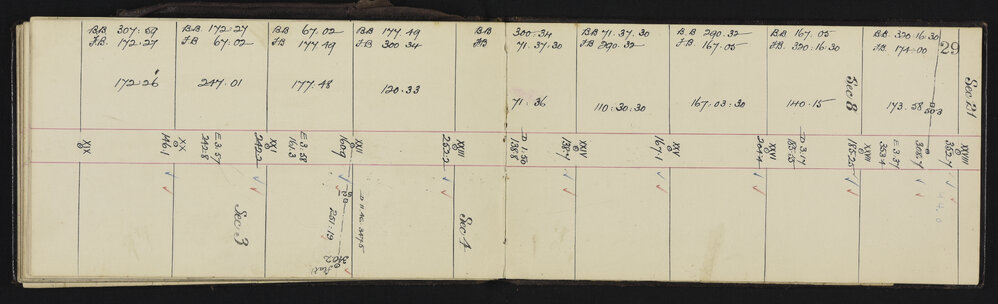 B.B. 307.59
F.B. 172.27
B.B. 172.27
F.B. 67.02
B.B. 67.02
F.B. 177.49
B.B. 177.49
F.B. 300.34
B.B. 300.34
F.B. 71.37.30
B.B. 71.37.30
F.B. 290.32
B.B. 290.32
F.B. 167.05
B.B. 167.05
F.B. 320.16.30
B.B. 320.16.30
F.B. 174.00
29
172.26
247.01
177.48
120.33
71.36
110.30.30
167.03.30
140.15
Sec 8
173.58
503
Sec 21
XIX
XX
1461
E 3.57
242.8
XX
242.2
E 3.58
161.3
XXI
160.9
XXIII
262.2
D 1.50
138.8
XXIV
138.7
XXV
167.1
XXVI
204.4
D 3.17
185.35
XXVII
185.25
E 3.37
353.4
308.7
XXVIII
352.7
Sec 3
251.19
D 11.42 347.5
340.2
Sec 4